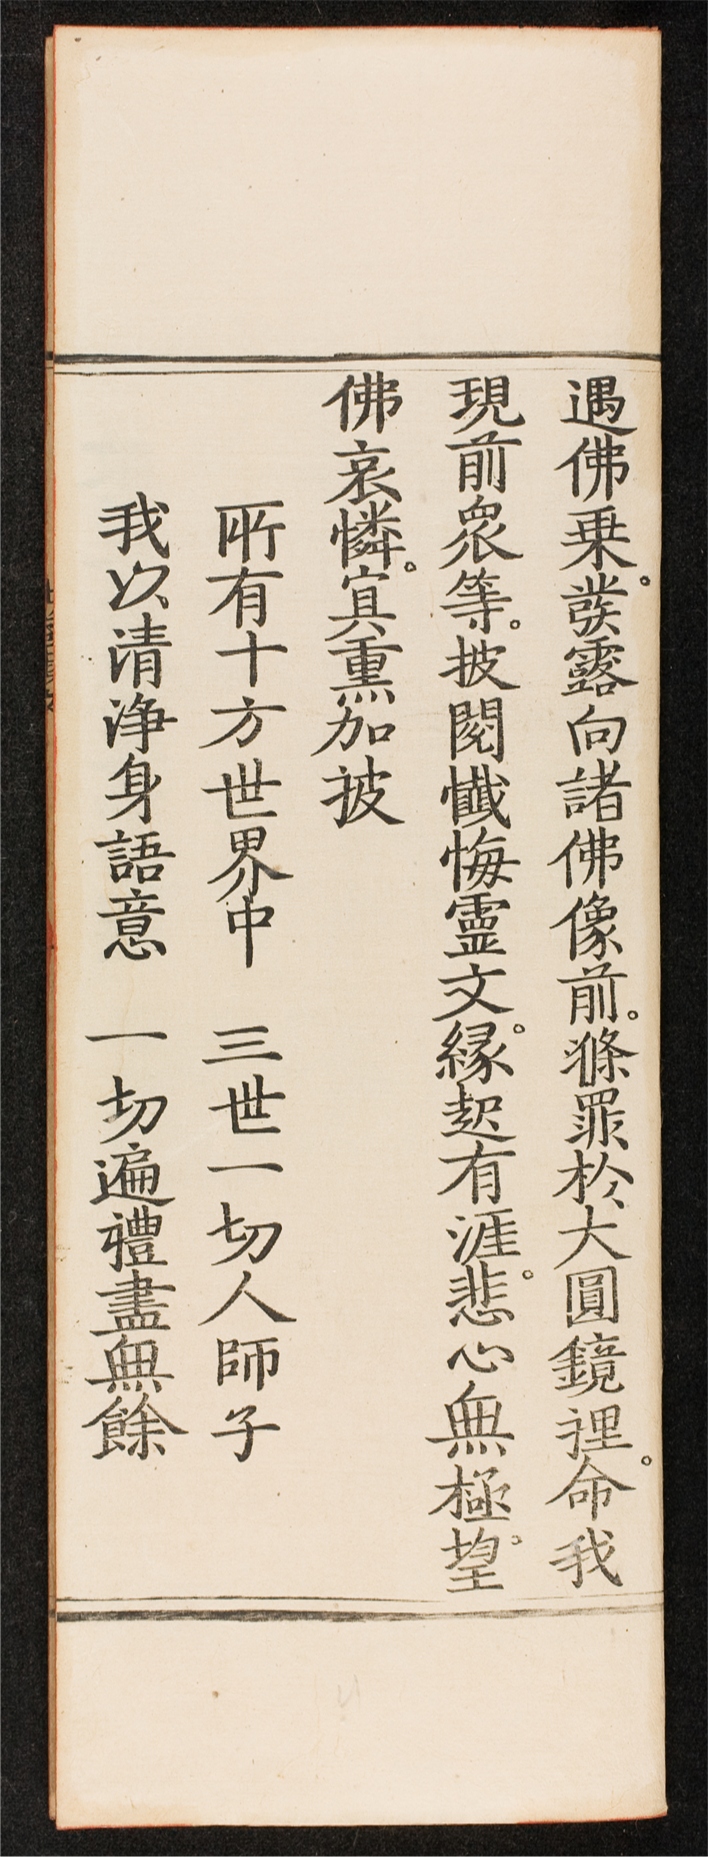 遇佛乗。發露向諸佛像前。滌罪於大圓鏡裡。命我
現前衆等。披閱懺悔靈文。縁起有涯。悲心無極。望
佛哀憐。冥熏加披
所有十方世界中　三世一切人師子
我以清浄身語意　一切遍禮盡無餘